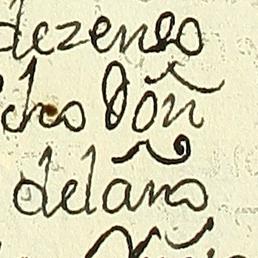 dezeneo
cho Dõn
delaño